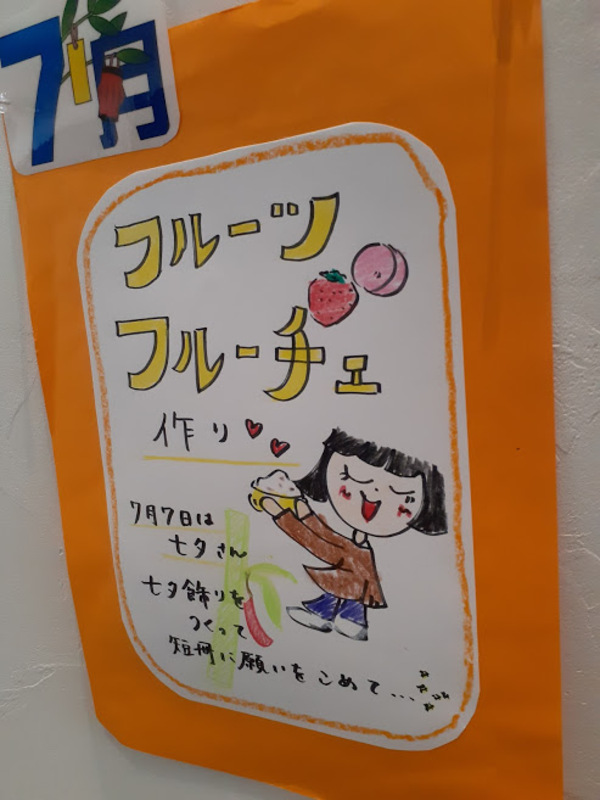 7月
フルーツ
フルーチェ
作り
7月7日は
七夕さん
七夕飾りを
つくって
短冊に願いをこめて...